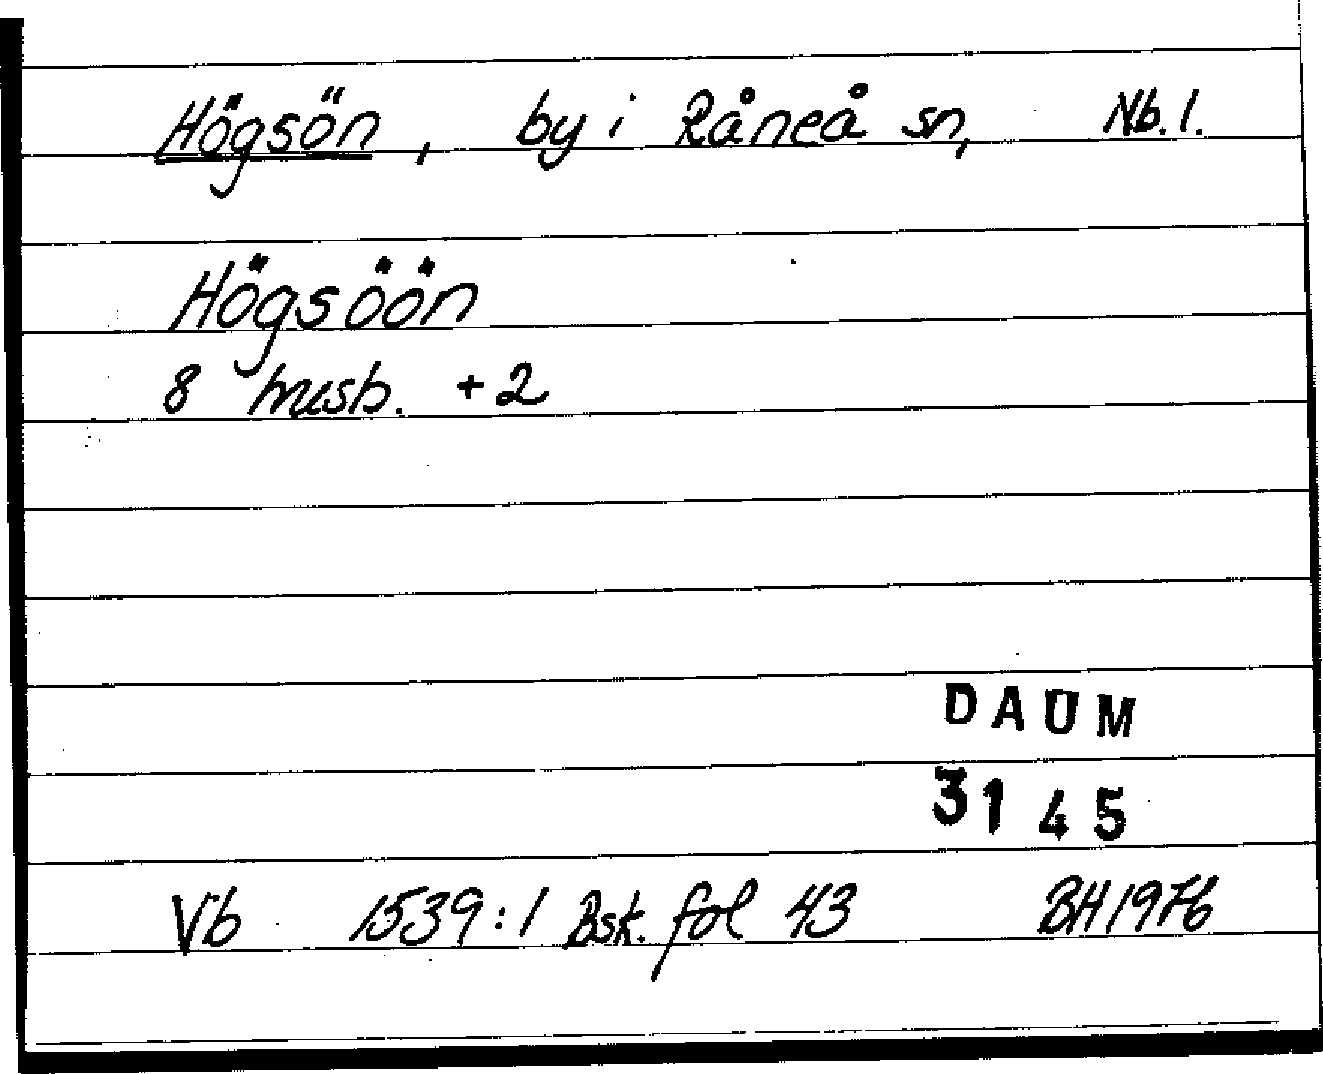 Högsön, by i Råneå sn, Nb.l.
Högsöön
8 husb. +2
DAUM
3145
Vb 1539:1 Bsk. fol 43 BH1976